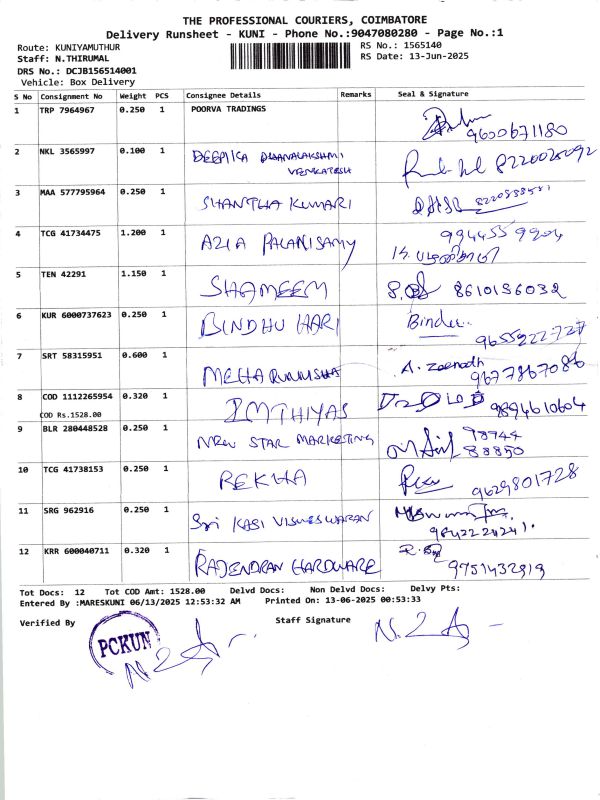 THE PROFESSIONAL COURIERS, COIMBATORE
Delivery Runsheet - KUNI - Phone No.:9047080280 - Page No.:1
Route: KUNIYAMUTHUR
RS No.: 1565140
Staff: N.THIRUMAL
RS Date: 13-Jun-2025
DRS No.: DCJB156514001
Vehicle: Box Delivery
S No Consignment No Weight PCS Consignee Details Remarks Seal & Signature
1 TRP 7964967 0.250 1 POORVA TRADINGS
9620671180
2 NKL 3565997 0.100 1 DEEPIKA DHANALAKSHMI
VENKATESH
8220025092
3 MAA 577795964 0.250 1 SHANTHA KUMARI
4 TCG 41734475 1.200 1 AZIA PALANISAMY
5 TEN 42291 1.150 1 SHAMEEM 8610156032
6 KUR 6000737623 0.250 1 BINDHU HARI Bindu
9655222727
7 SRT 58315951 0.600 1 MEHARUNNISHA A. Zeenadh
9677867086
8 COD 1112265954 0.320 1 IMTHIYAS
COD Rs.1528.00
9894610604
9 BLR 280448528 0.250 1 NEW STAR MARKETING 98944
88850
10 TCG 41738153 0.250 1 REKHA
9629801728
11 SRG 962916 0.250 1 Sri KASI VISWESWARAN
9842224241
12 KRR 600040711 0.320 1 RAJENDRAN HARDWARE
9751432919
Tot Docs: 12 Tot COD Amt: 1528.00 Delvd Docs: Non Delvd Docs: Delvy Pts:
Entered By :MARESKUNI 06/13/2025 12:53:32 AM Printed On: 13-06-2025 00:53:33
Verified By Staff Signature
PCKUN